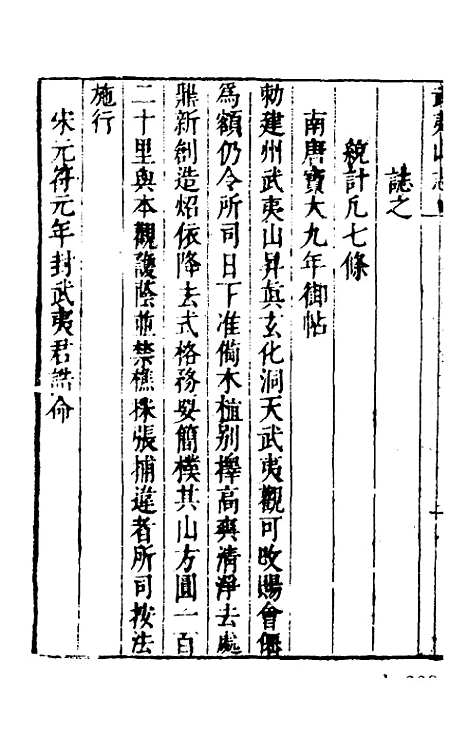 武夷山志
誌之
統計凡七條
南唐寶大九年御帖
勑建州武夷山昇真玄化洞天武夷觀可改賜會僊
爲額仍令所司日下准備木植别擇高爽清淨去處
鼎新創造炤依降去式格務要簡樸其山方圓一百
二十里與本觀護蔭並禁樵採張捕違者所司按法
施行
宋元符元年封武夷君誥命